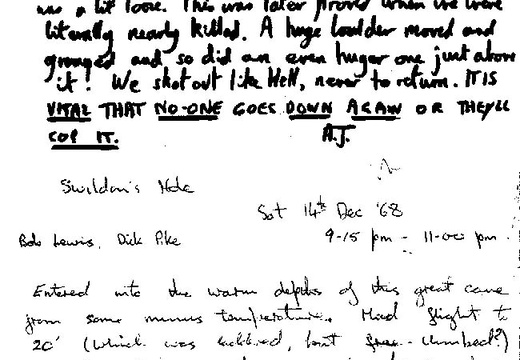 was a bit loose. This was later proved when we were
literally nearly killed. A huge boulder moved and
groaned and so did an even huger one just above
it! We shot out like Hell, never to return. IT IS
VITAL THAT NO-ONE GOES DOWN AGAIN OR THEY'LL
COP IT. A.J.
Swildon's Hole
Sat 14th Dec '68
Bob Lewis, Dick Pike 9-15 pm - 11-00 pm.
Entered into the warm depths of this great cave
from some minus temperature. Had flight to
20' (which was laddered, but free-climbed?)